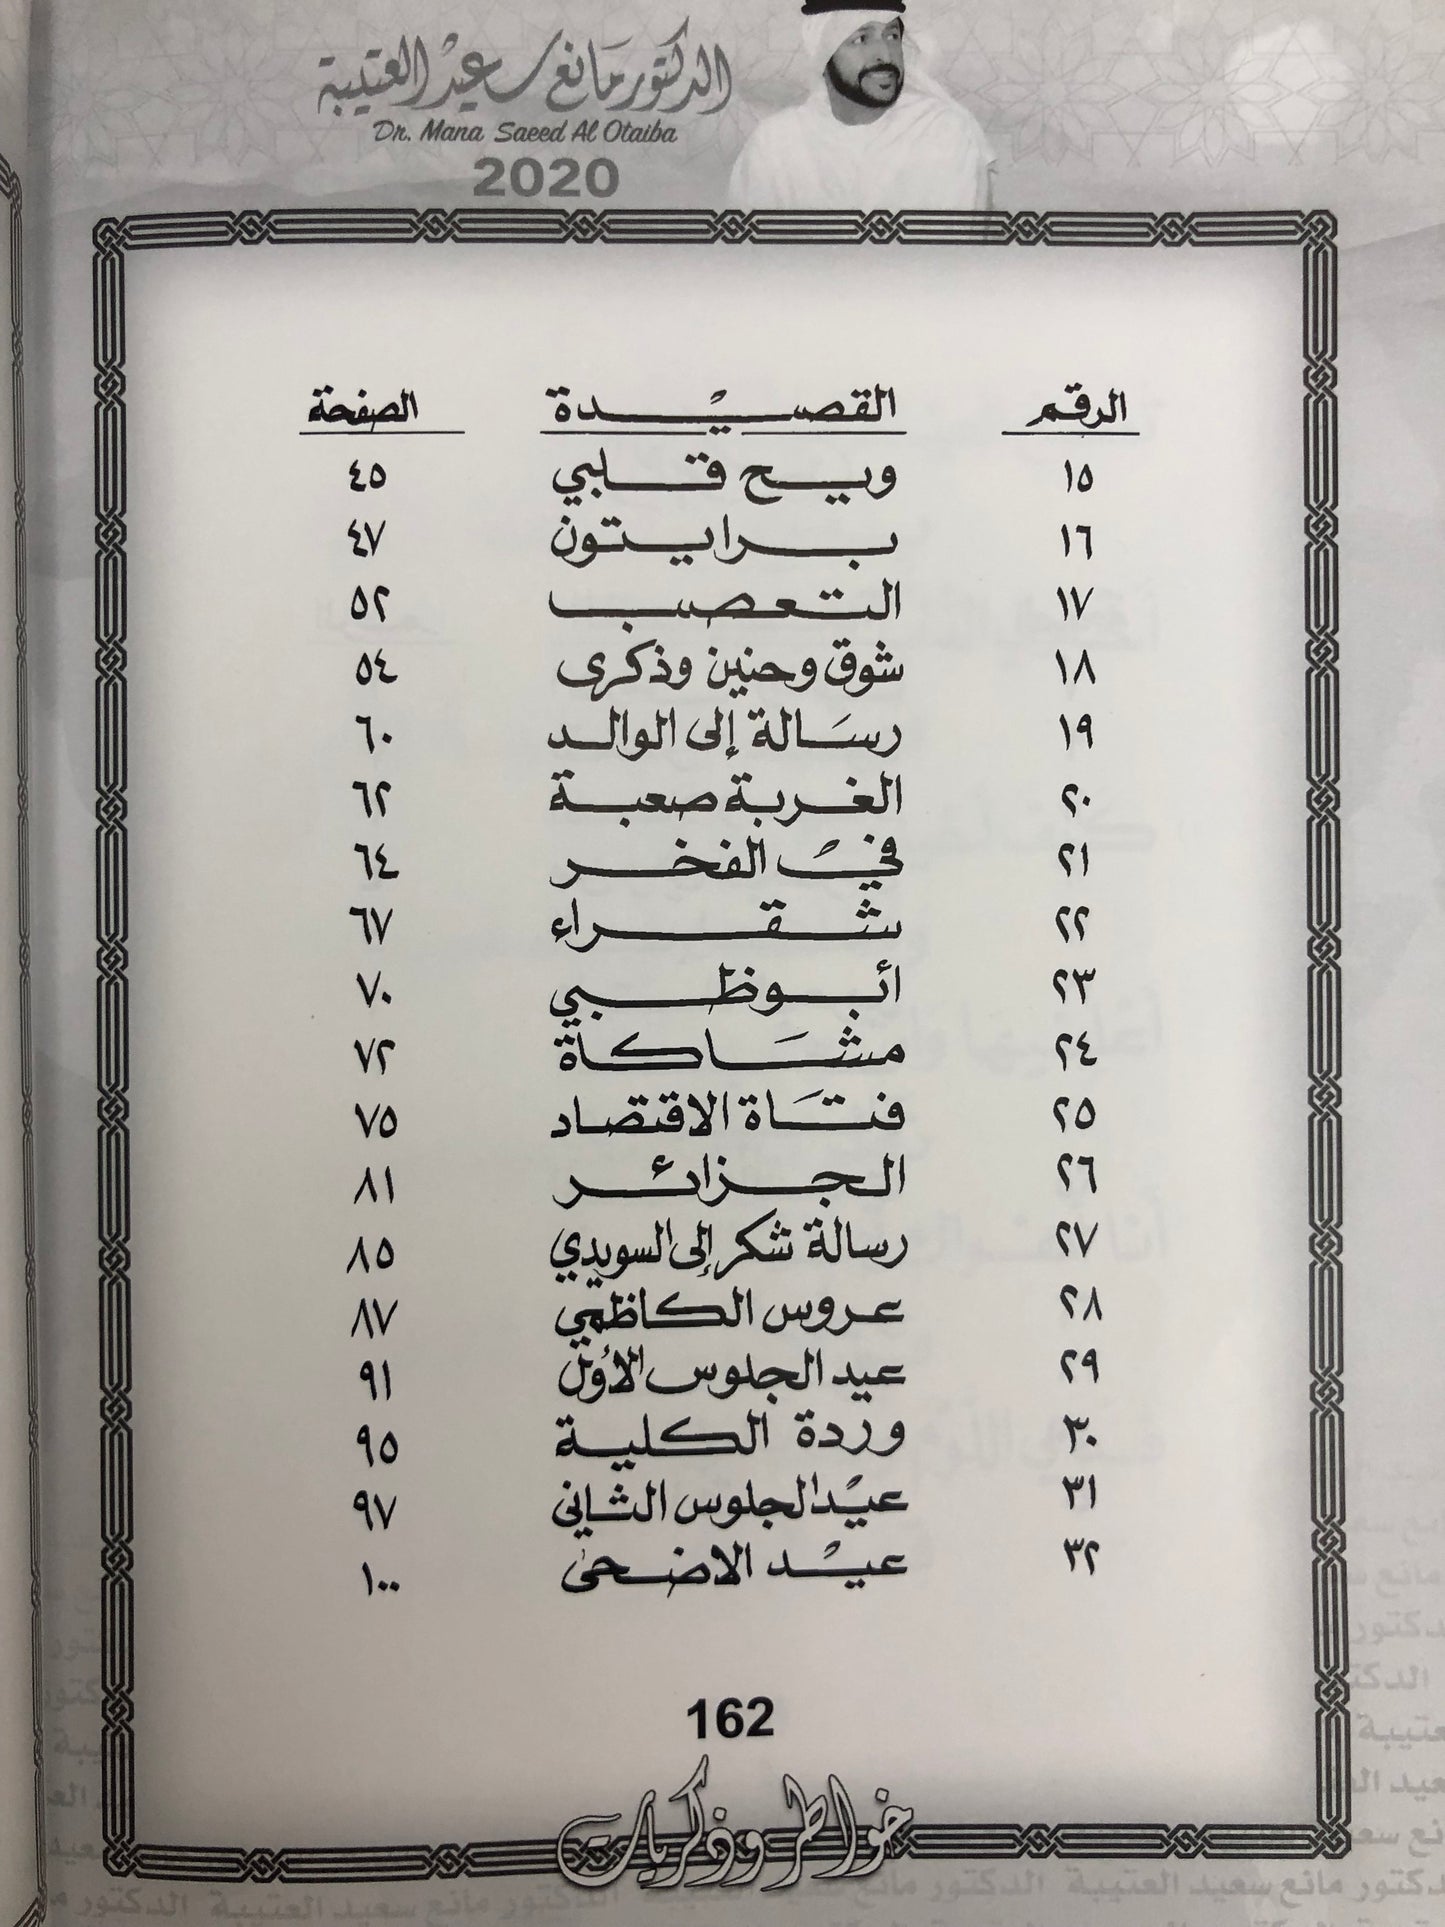 الدكتور مانع سعيد العتيبة
Dr. Mana Saeed Al Otaiba
2020
الرقم القصيدة الصفحة
١٥ ويح قلبي ٤٥
١٦ برايتون ٤٧
١٧ التعصب ٥٢
١٨ شوق وحنين وذكرى ٥٤
١٩ رسالة إلى الوالد ٦٠
٢٠ الغربة صعبة ٦٢
٢١ في الفخر ٦٤
٢٢ شقراء ٦٧
٢٣ أبوظبي ٧٠
٢٤ مشاكاة ٧٢
٢٥ فتاة الاقتصاد ٧٥
٢٦ الجزائر ٨١
٢٧ رسالة شكر إلى السويدي ٨٥
٢٨ عروس الكاظمي ٨٧
٢٩ عيد الجلوس الأول ٩١
٣٠ وردة الكلية ٩٥
٣١ عيد الجلوس الثاني ٩٧
٣٢ عيد الاضحى ١٠٠
162
خواطر وذكريات